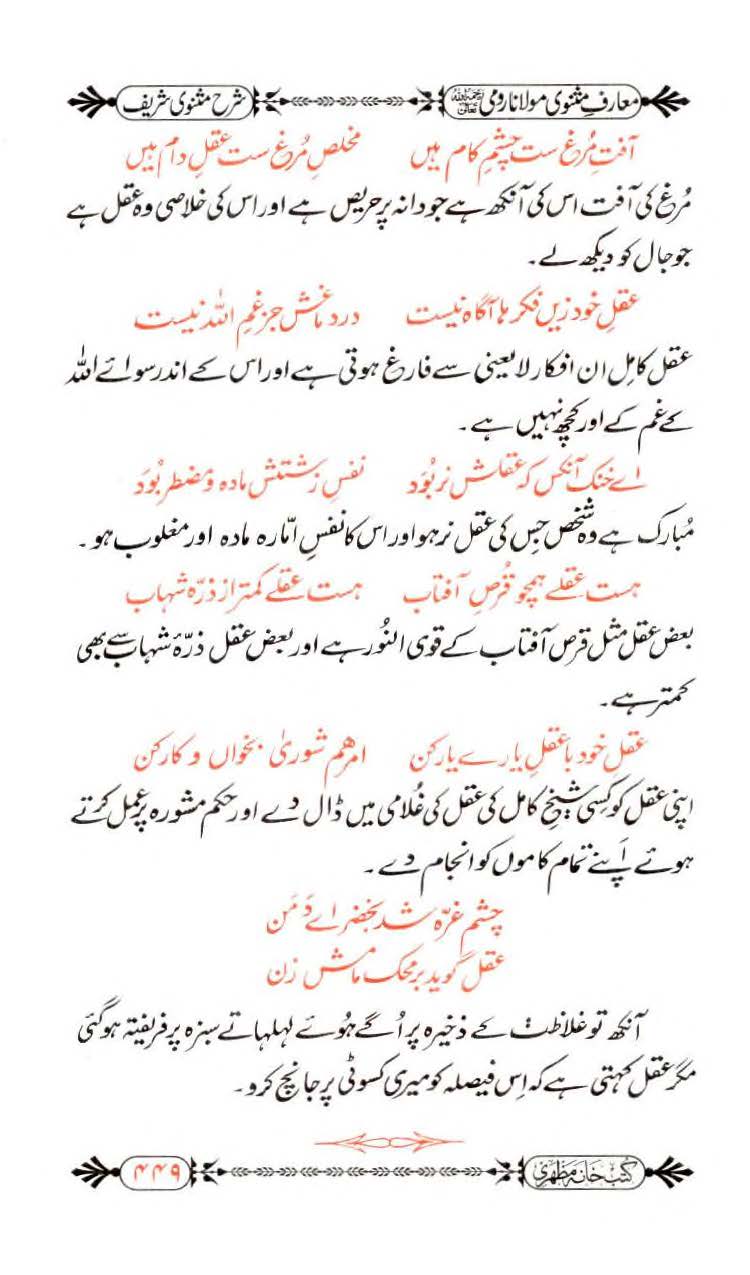 معارفِ مثنوی مولانا رومی رحمۃ اللہ تعالیٰ شرح مثنوی شریف
آفتِ مُرغ ست چشمِ کام بیں مخلصِ مُرغ ست عقلِ دام بیں
مُرغ کی آفت اس کی آنکھ ہے جو دانہ پر حریص ہے اور اس کی خلاصی وہ عقل ہے
جو جال کو دیکھ لے۔
عقلِ خود زیں فکر ہا آگاہ نیست در دماغش جز غمِ اللہ نیست
عقل کامل ان افکار لایعنی سے فارغ ہوتی ہے اور اس کے اندر سوائے اللہ
کے غم کے اور کچھ نہیں ہے۔
اے خنک آنکس کہ عقلش نر بُوَد نفسِ زشتش مادہ و مضطر بُوَد
مُبارک ہے وہ شخص جس کی عقل نر ہو اور اس کا نفسِ امّارہ مادہ اور مغلوب ہو۔
ہست عقلے ہمچو قُرصِ آفتاب ہست عقلے کمتر از ذرّہ شہاب
بعض عقل مثل قرص آفتاب کے قوی النُور ہے اور بعض عقل ذرّۂ شہاب سے بھی
کمتر ہے۔
عقل خود با عقلِ یارے یار کن امرھم شوریٰ بخواں و کار کن
اپنی عقل کو کسی شیخِ کامل کی عقل کی غُلامی میں ڈال دے اور حکم مشورہ پر عمل کرتے
ہوئے اَپنے تمام کاموں کو انجام دے۔
چشم غرّہ شد بخضراے دَمَن
عقل گوید بر محک ماش زن
آنکھ تو غلاظت کے ذخیرہ پر اُگے ہُوئے لہلہاتے سبزہ پر فریفتہ ہو گئی
مگر عقل کہتی ہے کہ اِس فیصلہ کو میری کسوٹی پر جانچ کرو۔
کُتب خانہ مظہری ۴۴۹